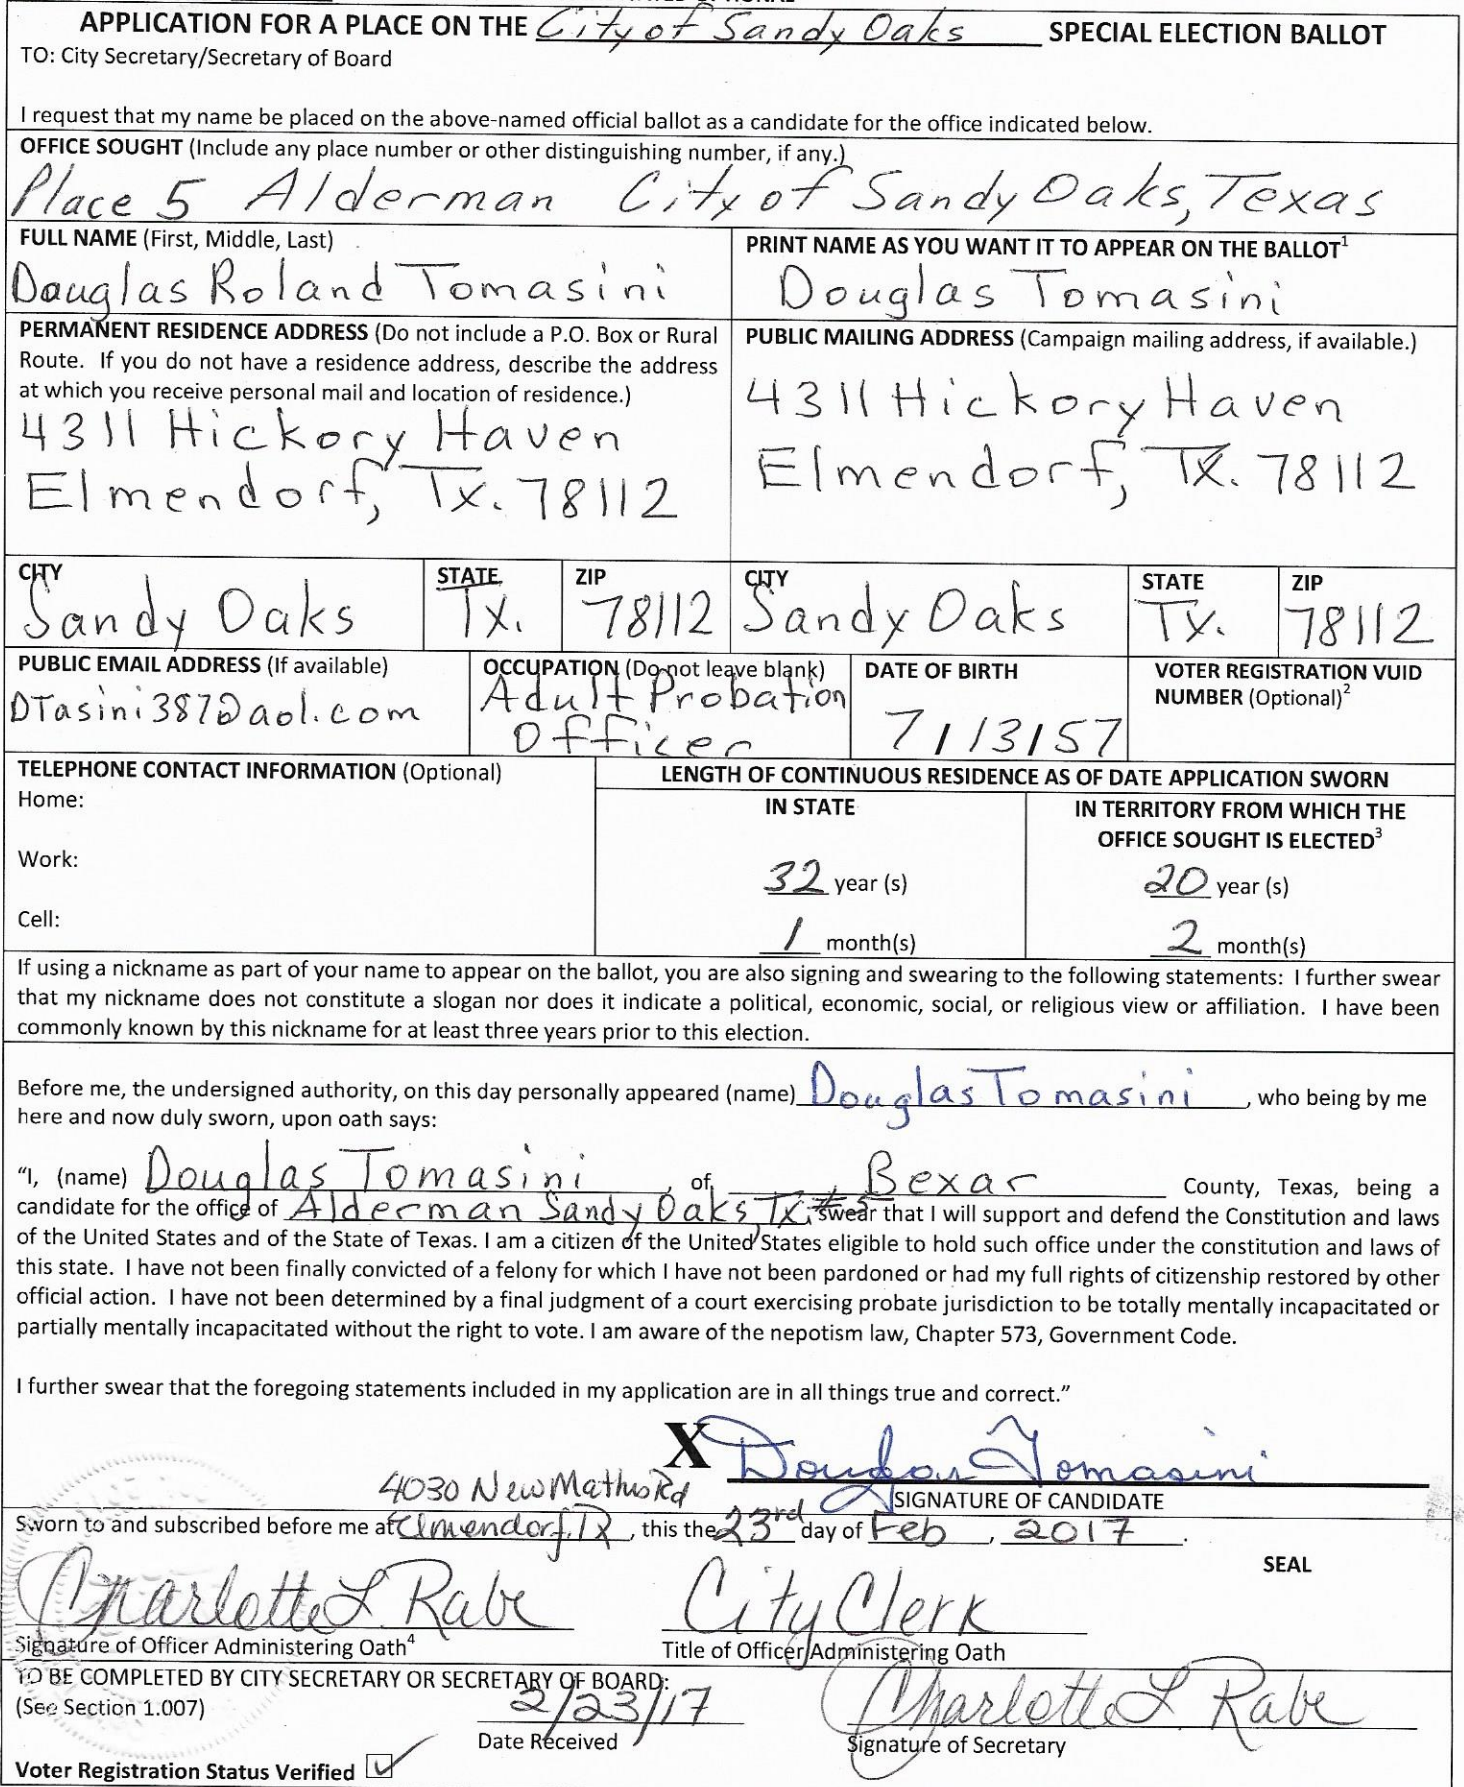 APPLICATION FOR A PLACE ON THE City of Sandy Oaks SPECIAL ELECTION BALLOT
TO: City Secretary/Secretary of Board
I request that my name be placed on the above-named official ballot as a candidate for the office indicated below.
OFFICE SOUGHT (Include any place number or other distinguishing number, if any.)
Place 5 Alderman City of Sandy Oaks, Texas
FULL NAME (First, Middle, Last)
Douglas Roland Tomasini
PRINT NAME AS YOU WANT IT TO APPEAR ON THE BALLOT1
Douglas Tomasini
PERMANENT RESIDENCE ADDRESS (Do not include a P.O. Box or Rural
Route. If you do not have a residence address, describe the address
at which you receive personal mail and location of residence.)
4311 Hickory Haven
Elmendorf, Tx. 78112
PUBLIC MAILING ADDRESS (Campaign mailing address, if available.)
4311 Hickory Haven
Elmendorf, Tx. 78112
CITY
Sandy Oaks
STATE
Tx.
ZIP
78112
CITY
Sandy Oaks
STATE
Tx.
ZIP
78112
PUBLIC EMAIL ADDRESS (If available)
DTasini387@aol.com
OCCUPATION (Do not leave blank)
Adult Probation
Officer
DATE OF BIRTH
7/13/57
VOTER REGISTRATION VUID
NUMBER (Optional)2
TELEPHONE CONTACT INFORMATION (Optional)
Home:
Work:
Cell:
LENGTH OF CONTINUOUS RESIDENCE AS OF DATE APPLICATION SWORN
IN STATE
32 year (s)
1 month(s)
IN TERRITORY FROM WHICH THE
OFFICE SOUGHT IS ELECTED3
20 year (s)
2 month(s)
If using a nickname as part of your name to appear on the ballot, you are also signing and swearing to the following statements: I further swear
that my nickname does not constitute a slogan nor does it indicate a political, economic, social, or religious view or affiliation. I have been
commonly known by this nickname for at least three years prior to this election.
Before me, the undersigned authority, on this day personally appeared (name) Douglas Tomasini, who being by me
here and now duly sworn, upon oath says:
"I, (name) Douglas Tomasini, of Bexar County, Texas, being a
candidate for the office of Alderman Sandy Oaks, Tx. #5 swear that I will support and defend the Constitution and laws
of the United States and of the State of Texas. I am a citizen of the United States eligible to hold such office under the constitution and laws of
this state. I have not been finally convicted of a felony for which I have not been pardoned or had my full rights of citizenship restored by other
official action. I have not been determined by a final judgment of a court exercising probate jurisdiction to be totally mentally incapacitated or
partially mentally incapacitated without the right to vote. I am aware of the nepotism law, Chapter 573, Government Code.
I further swear that the foregoing statements included in my application are in all things true and correct."
X Douglas Tomasini
SIGNATURE OF CANDIDATE
4030 New Mathis Rd
Sworn to and subscribed before me at Elmendorf, TX, this the 23rd day of Feb, 2017.
SEAL
Charlotte L Rabe
City Clerk
Signature of Officer Administering Oath4
Title of Officer Administering Oath
TO BE COMPLETED BY CITY SECRETARY OR SECRETARY OF BOARD:
(See Section 1.007)
2/23/17
Date Received
Charlotte L Rabe
Signature of Secretary
Voter Registration Status Verified ☑